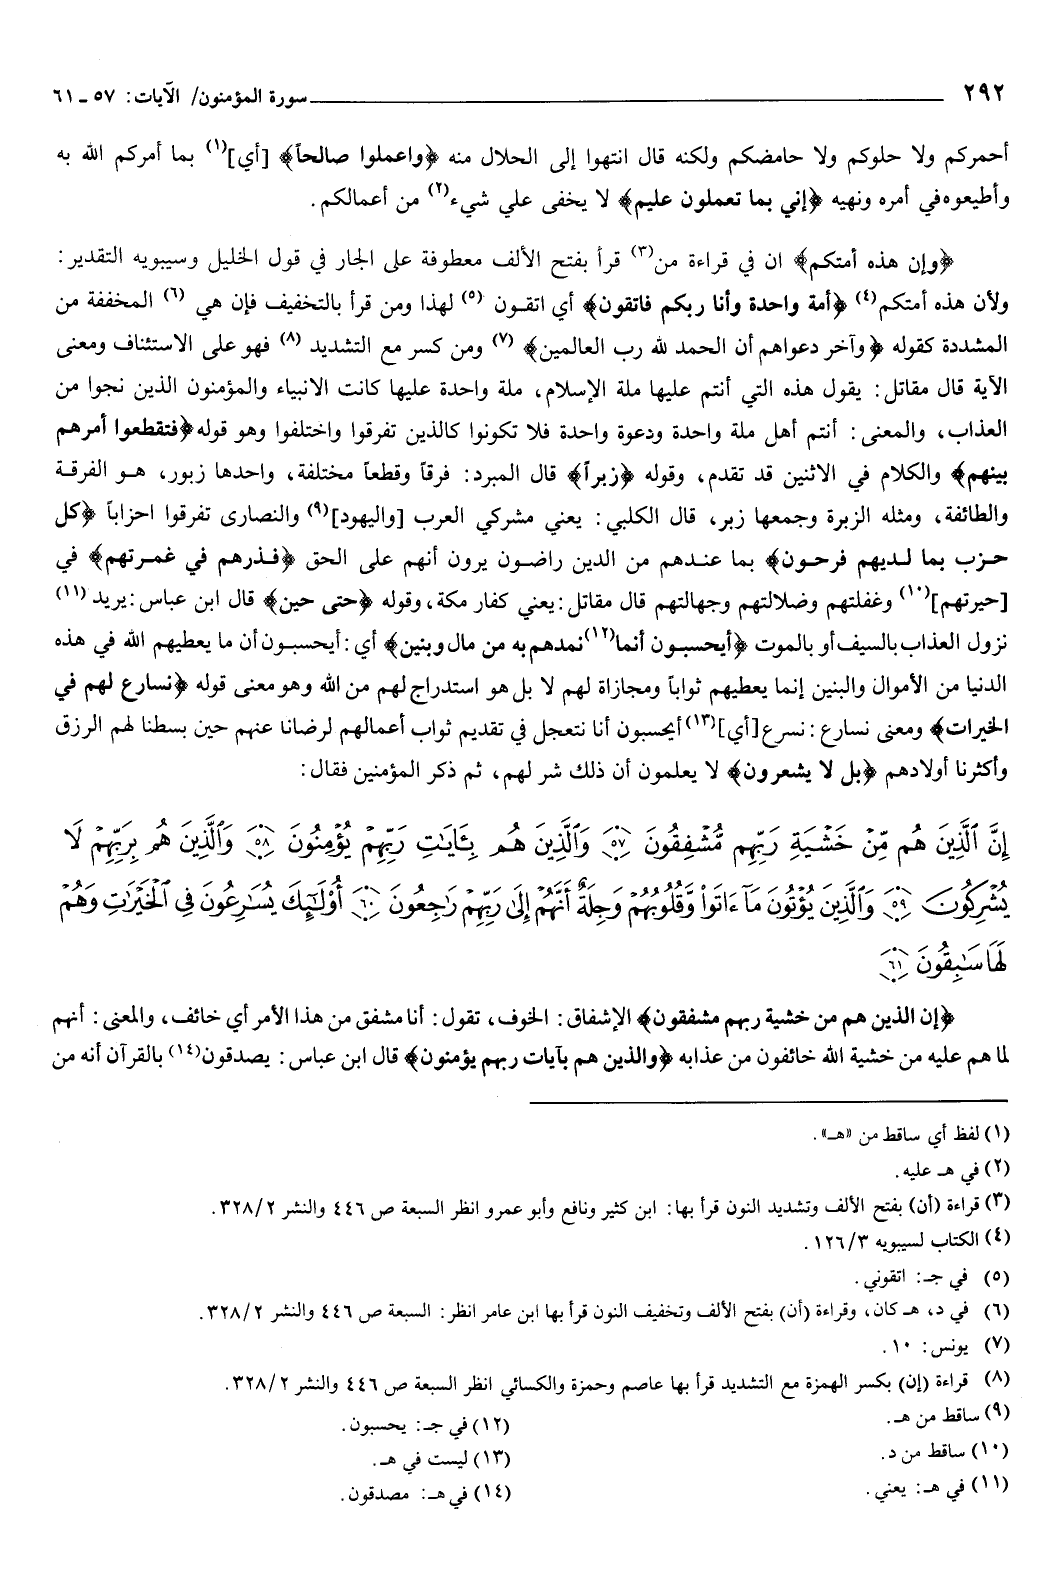 ٢٩٢ سورة المؤمنون/ الآيات: ٥٧ - ٦١
أحمركم ولا حلوكم ولا حامضكم ولكنه قال انتهوا إلى الحلال منه ﴿واعملوا صالحاً﴾ [أي](١) بما أمركم الله به
وأطيعوه في أمره ونهيه ﴿إني بما تعملون عليم﴾ لا يخفى علي شيء(٢) من أعمالكم.
﴿وإن هذه أمتكم﴾ ان في قراءة من(٣) قرأ بفتح الألف معطوفة على الجار في قول الخليل وسيبويه التقدير:
ولأن هذه أمتكم(٤) ﴿أمة واحدة وأنا ربكم فاتقون﴾ أي اتقـون (٥) لهذا ومن قرأ بالتخفيف فإن هي (٦) المخففة من
المشددة كقوله ﴿وآخر دعواهم أن الحمد لله رب العالمين﴾ (٧) ومن كسر مع التشديد (٨) فهو على الاستئناف ومعنى
الآية قال مقاتل: يقول هذه التي أنتم عليها ملة الإسلام، ملة واحدة عليها كانت الانبياء والمؤمنون الذين نجوا من
العذاب، والمعنى: أنتم أهل ملة واحدة ودعوة واحدة فلا تكونوا كالذين تفرقوا واختلفوا وهو قوله ﴿فتقطعوا أمرهم
بينهم﴾ والكلام في الاثنين قد تقدم، وقوله ﴿زبراً﴾ قال المبرد: فرقاً وقطعاً مختلفة، واحدها زبور، هـو الفرقـة
والطائفة، ومثله الزبرة وجمعها زبر، قال الكلبي: يعني مشركي العرب [واليهود](٩) والنصارى تفرقوا احزاباً ﴿كل
حـزب بما لـديهم فرحـون﴾ بما عنـدهم من الدين راضـون يرون أنهم على الحق ﴿فـذرهم في غمـرتهم﴾ في
[حيرتهم](١٠) وغفلتهم وضلالتهم وجهالتهم قال مقاتل: يعني كفار مكة، وقوله ﴿حتى حين﴾ قال ابن عباس: يريد (١١)
نزول العذاب بالسيف أو بالموت ﴿أيحسبـون أنما(١٢) نمدهم به من مال وبنين﴾ أي: أيحسبـون أن ما يعطيهم الله في هذه
الدنيا من الأموال والبنين إنما يعطيهم ثواباً ومجازاة لهم لا بل هو استدراج لهم من الله وهو معنى قوله ﴿نسارع لهم في
الخيرات﴾ ومعنى نسارع: نسرع [أي](١٣) أيحسبون أنا نتعجل في تقديم ثواب أعمالهم لرضانا عنهم حين بسطنا لهم الرزق
وأكثرنا أولادهم ﴿بل لا يشعرون﴾ لا يعلمون أن ذلك شر لهم، ثم ذكر المؤمنين فقال:
إِنَّ ٱلَّذِينَ هُم مِّنْ خَشْيَةِ رَبِّهِم مُّشْفِقُونَ ٥٧ وَٱلَّذِينَ هُم بِـَٔايَٰتِ رَبِّهِمْ يُؤْمِنُونَ ٥٨ وَٱلَّذِينَ هُم بِرَبِّهِمْ لَا
يُشْرِكُونَ ٥٩ وَٱلَّذِينَ يُؤْتُونَ مَآ ءَاتَوا۟ وَّقُلُوبُهُمْ وَجِلَةٌ أَنَّهُمْ إِلَىٰ رَبِّهِمْ رَٰجِعُونَ ٦٠ أُو۟لَٰٓئِكَ يُسَٰرِعُونَ فِى ٱلْخَيْرَٰتِ وَهُمْ
لَهَا سَٰبِقُونَ ٦١
﴿إن الذين هم من خشية ربهم مشفقون﴾ الإشفاق: الخوف، تقول: أنا مشفق من هذا الأمر أي خائف، والمعنى: أنهم
لما هم عليه من خشية الله خائفون من عذابه ﴿والذين هم بآيات ربهم يؤمنون﴾ قال ابن عباس: يصدقون(١٤) بالقرآن أنه من
(١) لفظ أي ساقط من «هـ».
(٢) في هـ عليه.
(٣) قراءة (أن) بفتح الألف وتشديد النون قرأ بها: ابن كثير ونافع وأبو عمرو انظر السبعة ص ٤٤٦ والنشر ٣٢٨/٢.
(٤) الكتاب لسيبويه ١٢٦/٣.
(٥) في جـ: اتقوني.
(٦) في د، هـ كان، وقراءة (أن) بفتح الألف وتخفيف النون قرأ بها ابن عامر انظر: السبعة ص ٤٤٦ والنشر ٣٢٨/٢.
(٧) يونس: ١٠.
(٨) قراءة (إن) بكسر الهمزة مع التشديد قرأ بها عاصم وحمزة والكسائي انظر السبعة ص ٤٤٦ والنشر ٣٢٨/٢.
(٩) ساقط من هـ.
(١٠) ساقط من د.
(١١) في هـ: يعني.
(١٢) في جـ: يحسبون.
(١٣) ليست في هـ.
(١٤) في هـ: مصدقون.